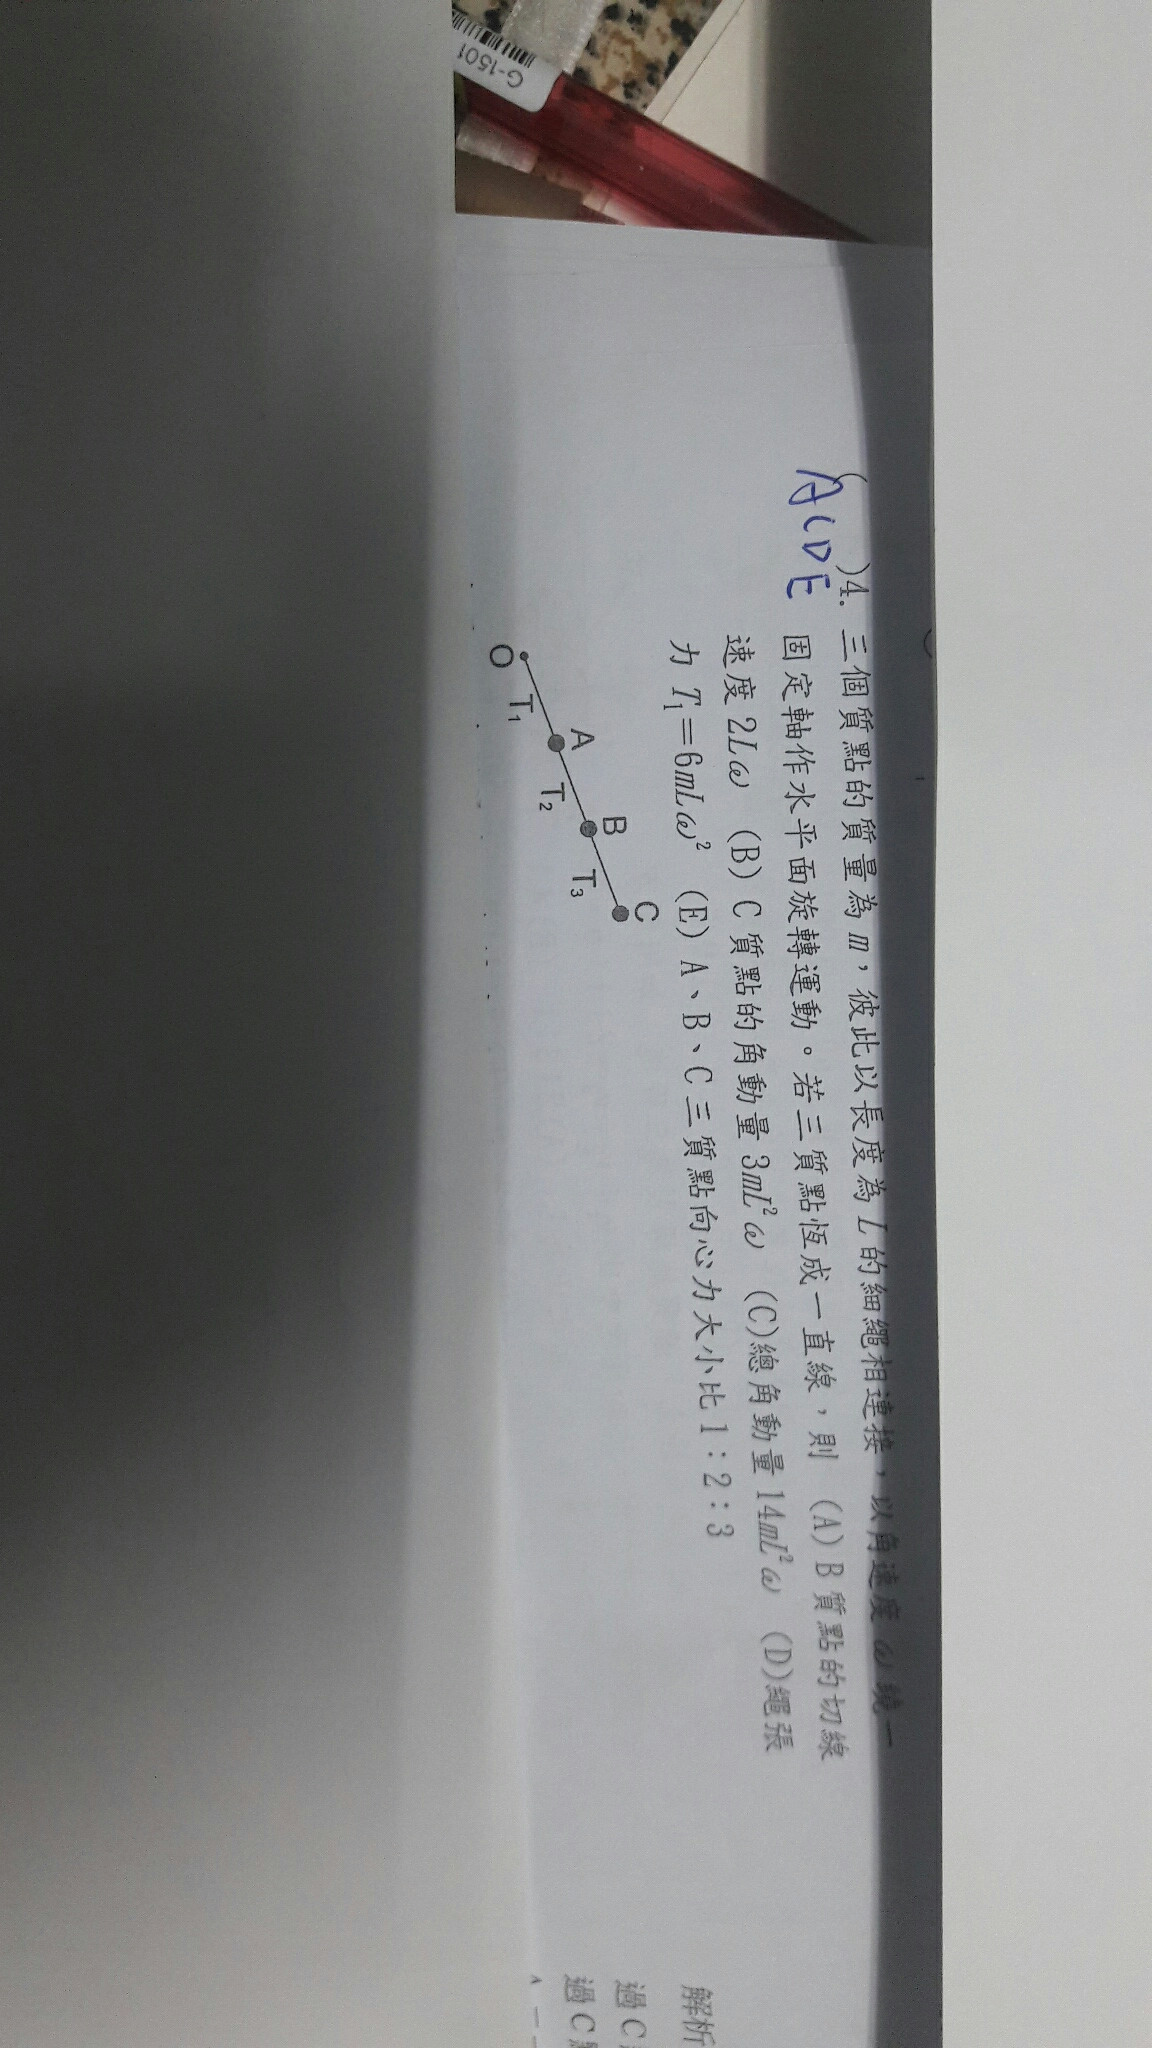 G-1501
ACDE
( )4. 三個質點的質量為 m，彼此以長度為 L 的細繩相連接，以角速度 ω 繞一
固定軸作水平面旋轉運動。若三質點恆成一直線，則 (A) B 質點的切線
速度 2Lω (B) C 質點的角動量 3mL²ω (C)總角動量 14mL²ω (D)繩張
力 T₁＝6mLω² (E) A、B、C 三質點向心力大小比 1：2：3
A B C
O T₁ T₂ T₃
解析
過 C
過 C